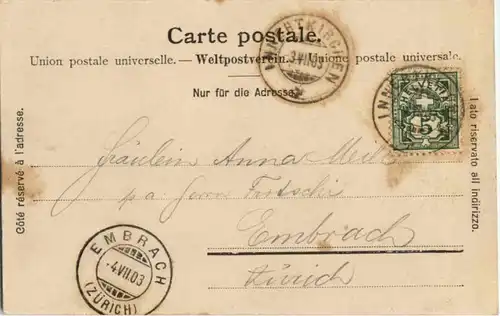 Carte postale.
Union postale universelle. — Weltpostverein. — Unione postale universale.
Nur für die Adresse.
Côté réservé à l'adresse.
Lato riservato all indirizzo.
INNERTKIRCHEN
3.VII.03
HELVETIA
5
INN
Fräulein Anna
p.a. Herrn
Embrach
Zürich
EMBRACH
-4.VII.03
(ZÜRICH)